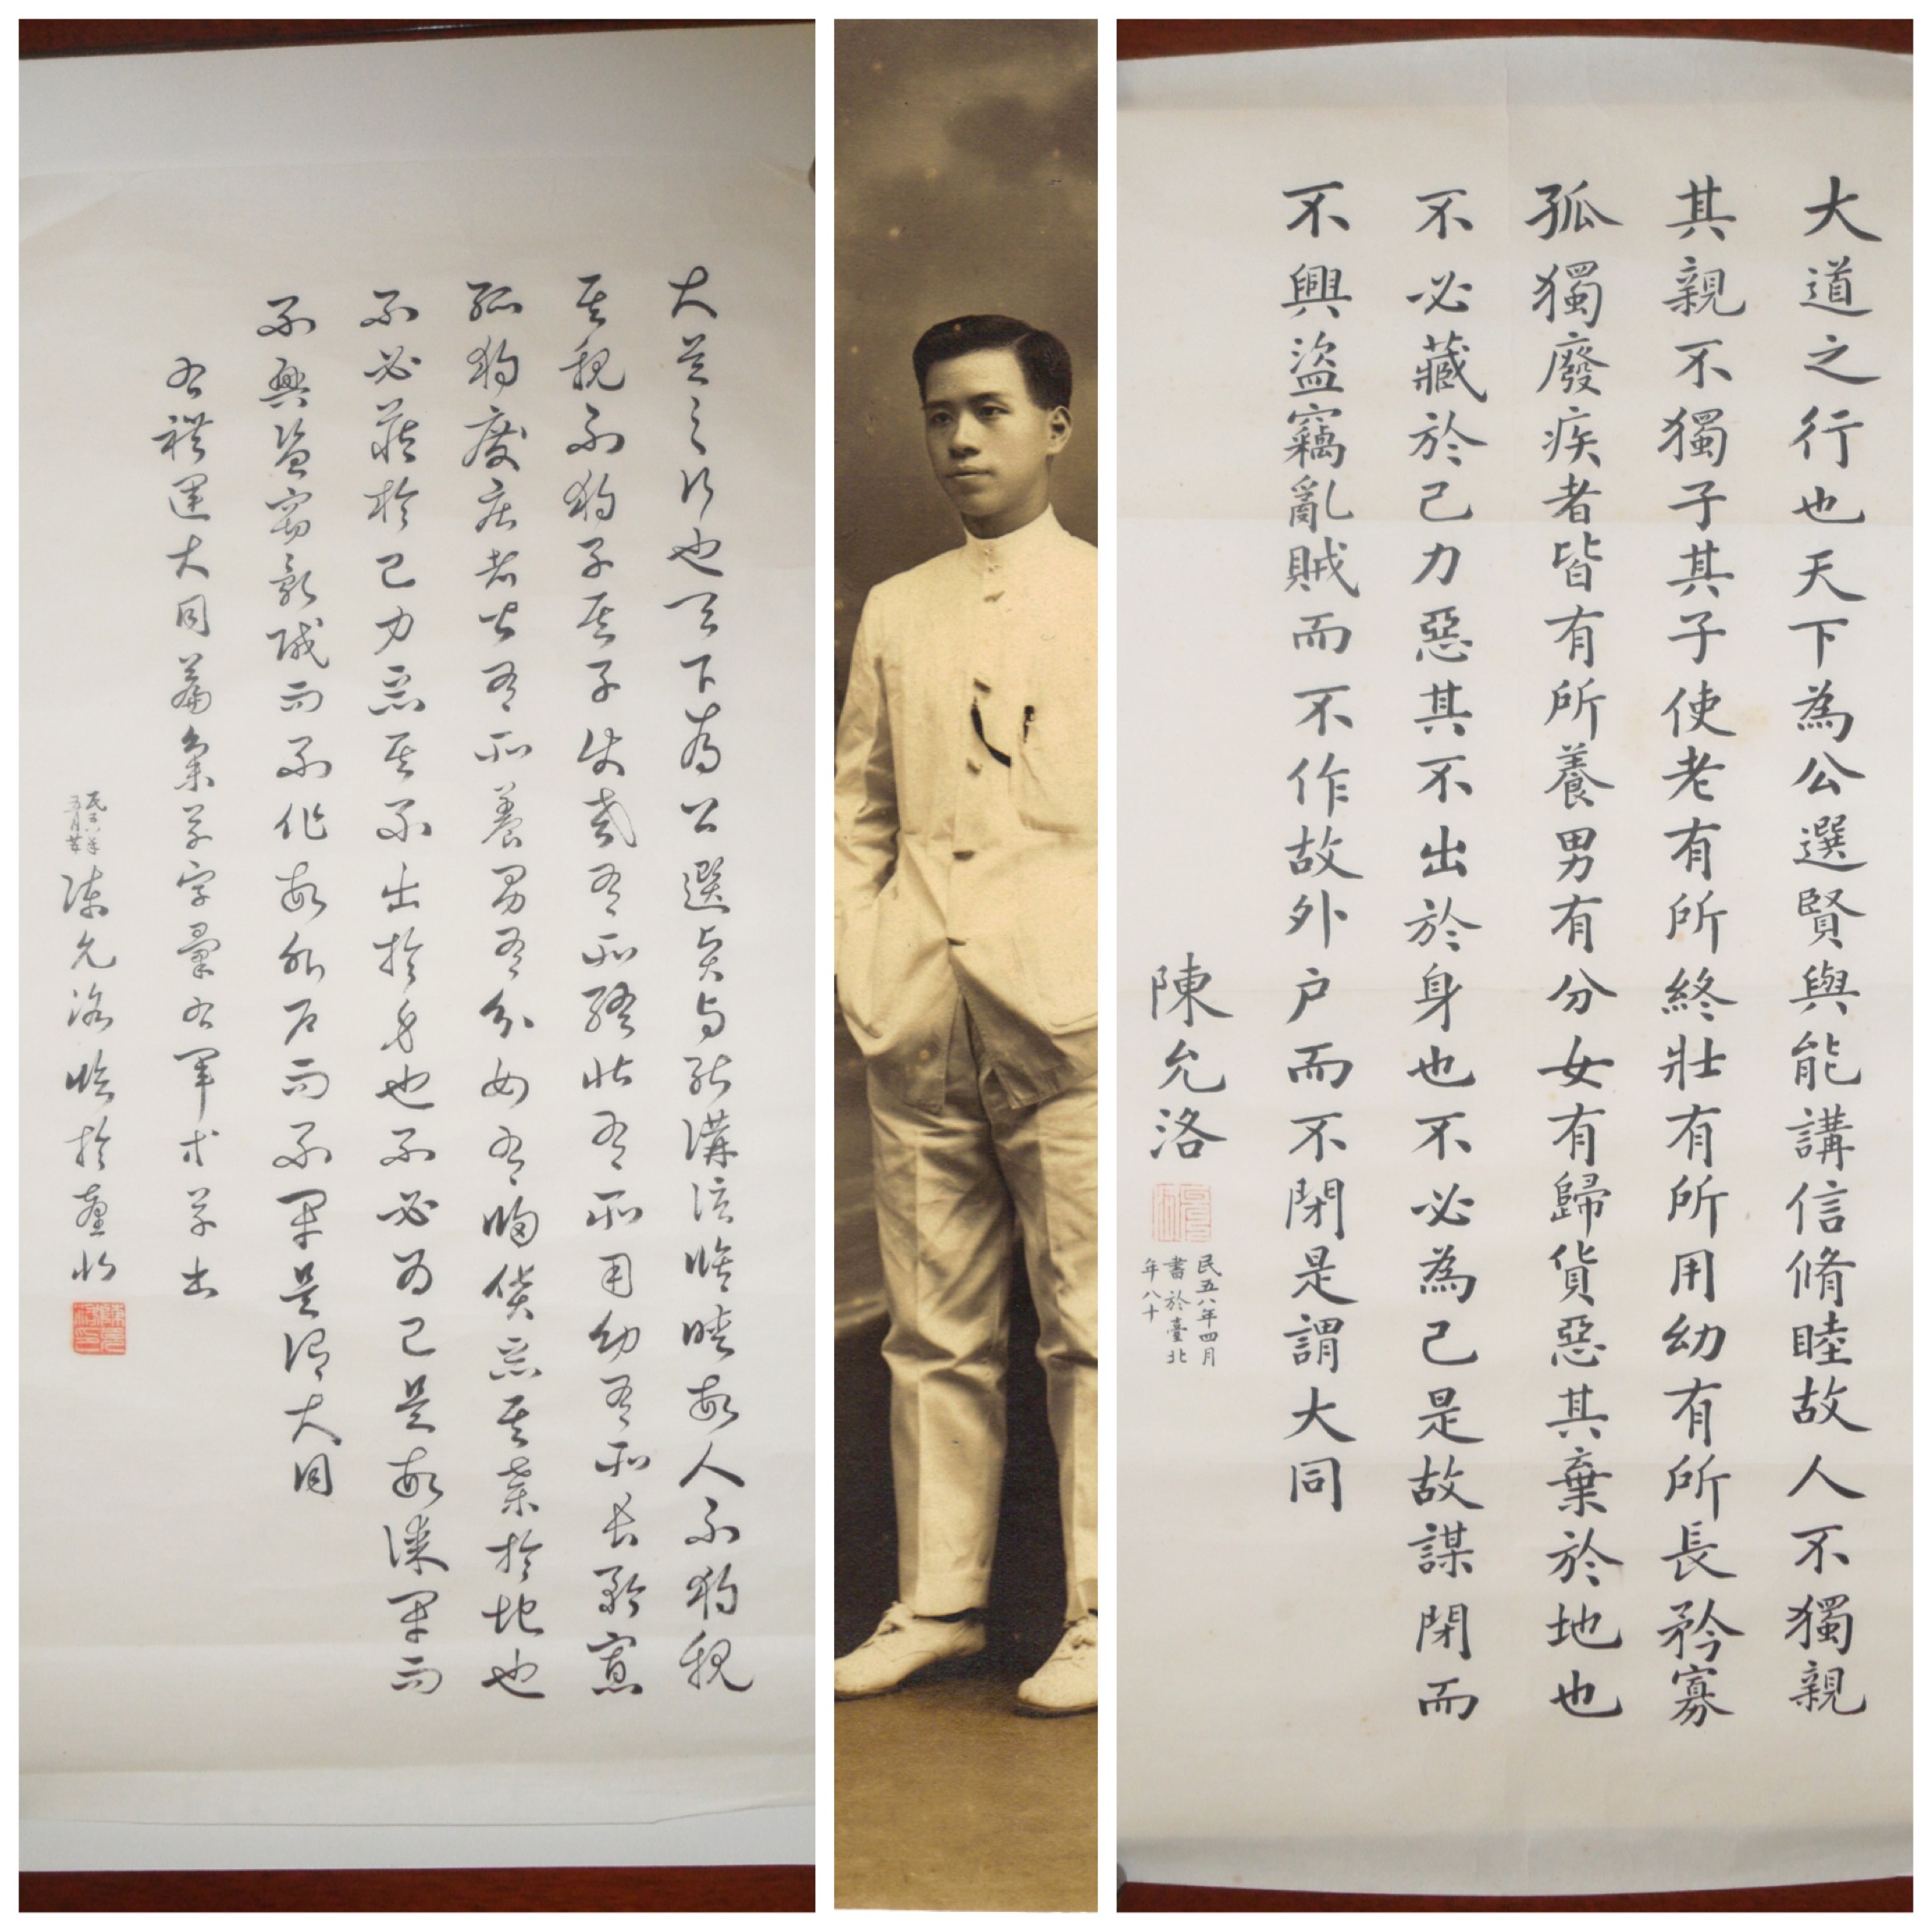 大道之行也天下為公選賢與能講信脩睦故人不獨親
其親不獨子其子使老有所終壯有所用幼有所長矜寡
孤獨廢疾者皆有所養男有分女有歸貨惡其棄於地也
不必藏於己力惡其不出於身也不必為己是故謀閉而
不興盜竊亂賊而不作故外户而不閉是謂大同
右禮運大同篇集草字彙右軍草
民五八年
五月
陳允洛臨於臺北
大道之行也天下為公選賢與能講信脩睦故人不獨親
其親不獨子其子使老有所終壯有所用幼有所長矜寡
孤獨廢疾者皆有所養男有分女有歸貨惡其棄於地也
不必藏於己力惡其不出於身也不必為己是故謀閉而
不興盜竊亂賊而不作故外户而不閉是謂大同
陳允洛
民五八年四月
書於臺北
年八十